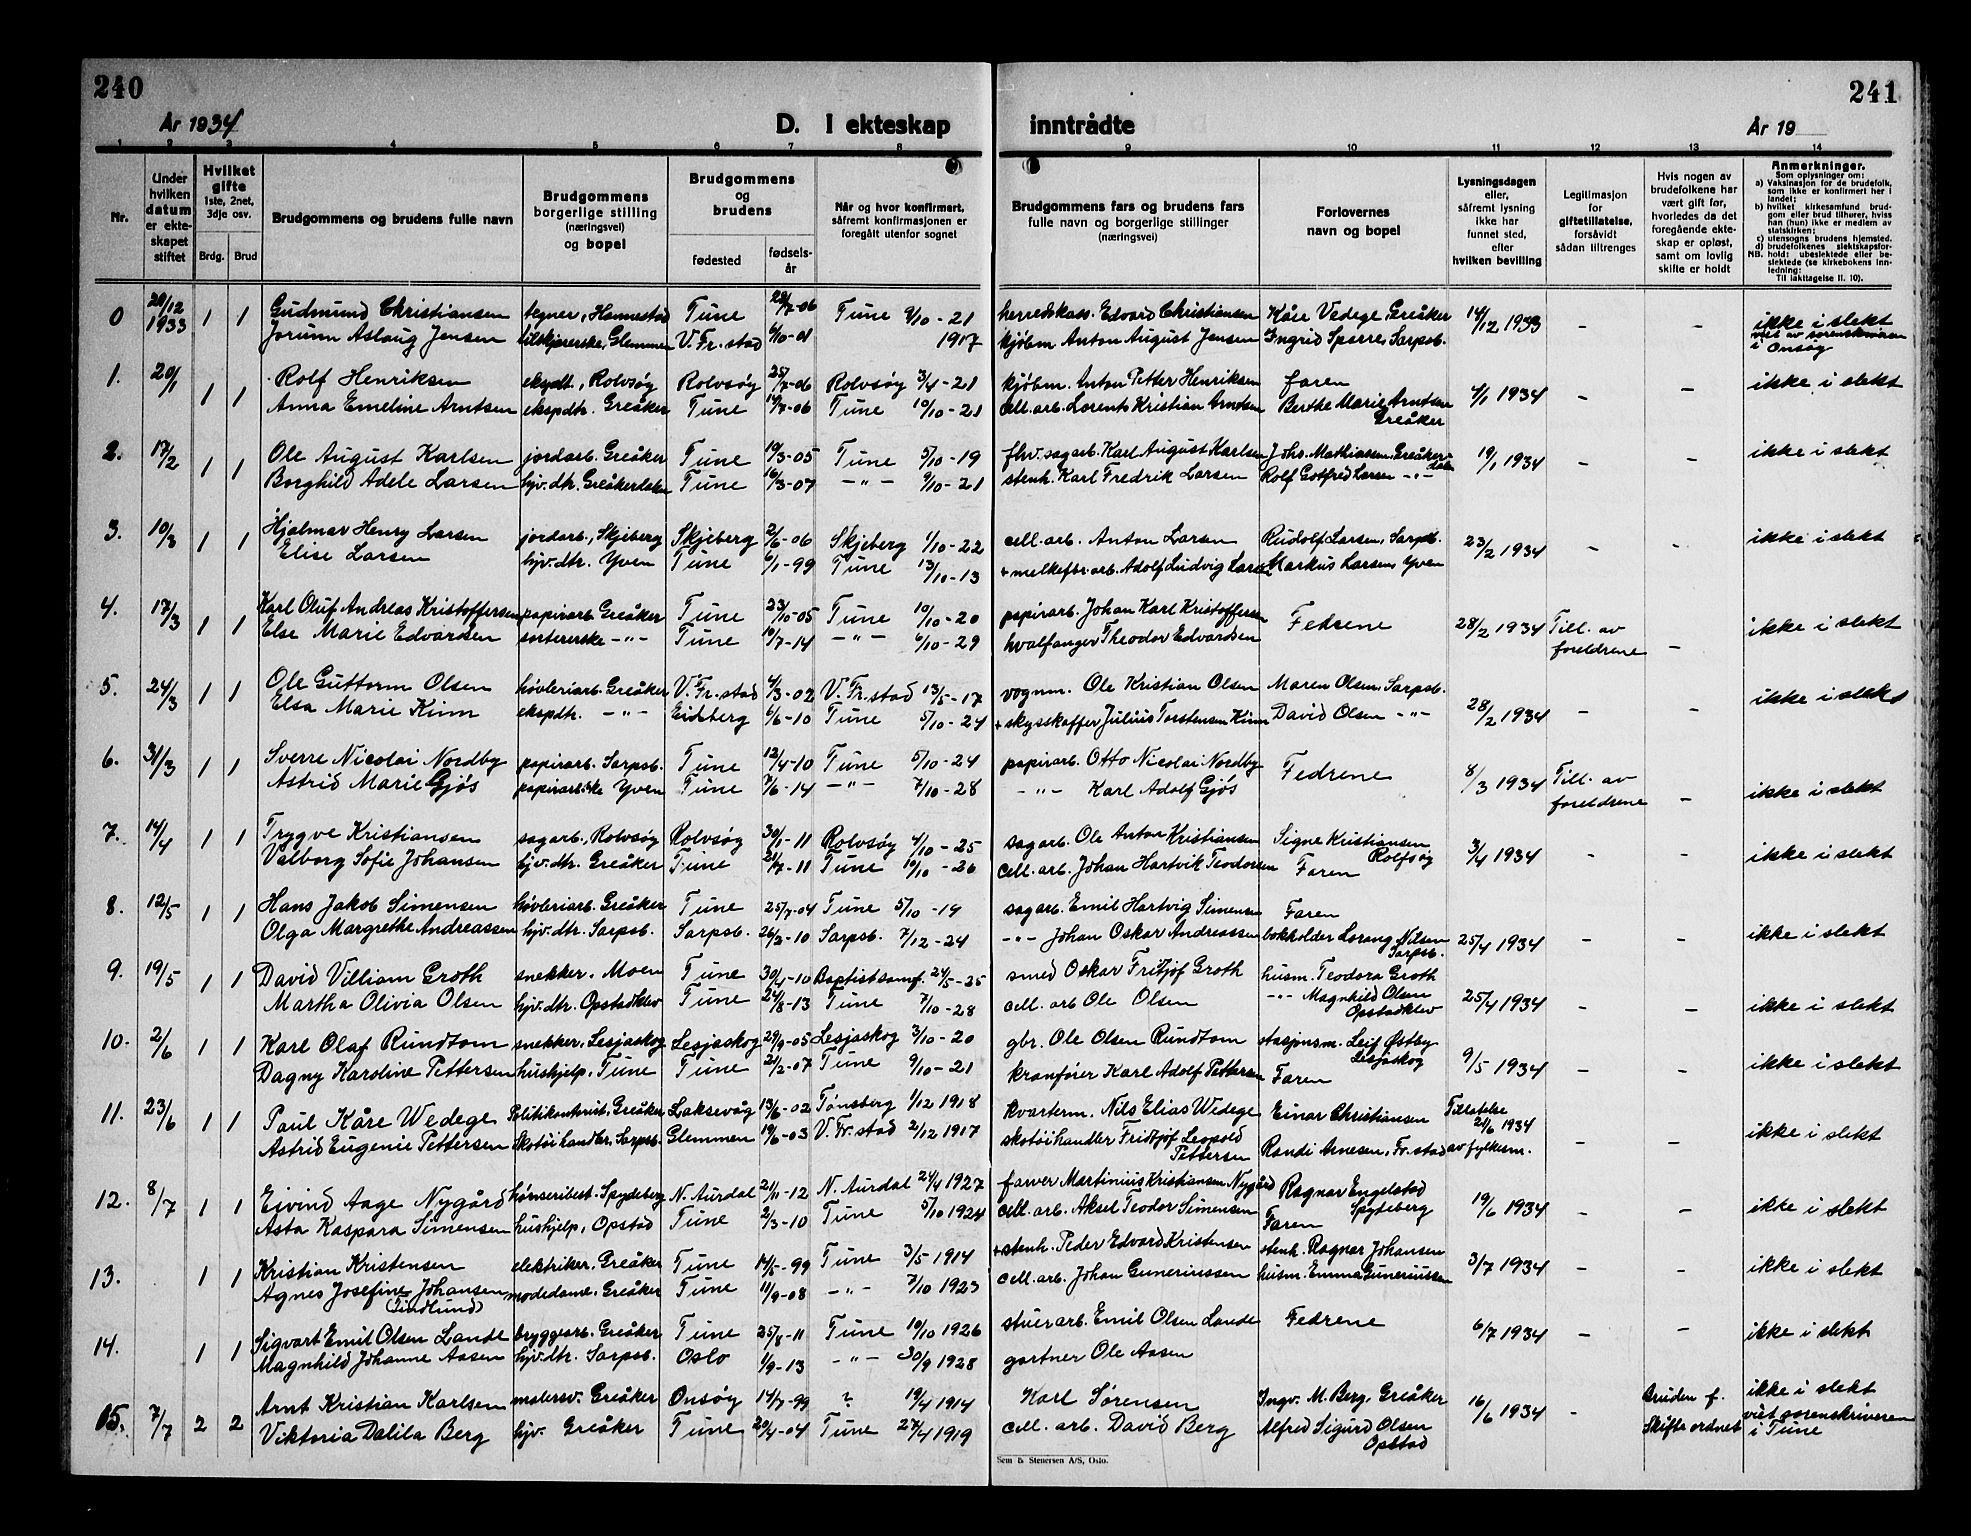 240
241
År 1934
D. I ekteskap inntrådte
År 19
1 2 3 4 5 6 7 8 9 10 11 12 13 14
Nr.
Under hvilken datum er ekteskapet stiftet
Hvilket gifte 1ste, 2net, 3dje osv.
Brdg. Brud
Brudgommens og brudens fulle navn
Brudgommens borgerlige stilling (næringsvei) og bopel
Brudgommens og brudens
fødested
fødselsår
Når og hvor konfirmert, såfremt konfirmasjonen er foregått utenfor sognet
Brudgommens fars og brudens fars fulle navn og borgerlige stillinger (næringsvei)
Forlovernes navn og bopel
Lysningsdagen eller, såfremt lysning ikke har funnet sted, efter hvilken bevilling
Legitimasjon for giftetillatelse, forsåvidt sådan tiltrenges
Hvis nogen av brudefolkene har vært gift før, hvorledes da det foregående ekteskap er opløst, samt om lovlig skifte er holdt
Anmerkninger.
Som oplysninger om:
a) Vaksinasjon for de brudefolk, som ikke er konfirmert her i landet;
b) hvilket kirkesamfund brudgom eller brud tilhører, hviss han (hun) ikke er medlem av statskirken;
c) utensogns brudens hjemsted.
d) brudefolkenes slektskapsforhold: ubeslektede eller beslektede (se kirkebokens innledning:
NB. Til iakttagelse II. 10).
0 20/12 1933 1 1 Gudmund Christiansen tegner, Hannestad Tune 29/7-06 Tune 9/10-21 herredskass. Edvard Christiansen Kåre Vedege Greåker 14/12 1933 - - ikke i slekt
Jorunn Aslaug Jensen tilskjærerske, Glemmen V. Fr.stad 6/10-01 1917 kjøbm Anton August Jensen Ingrid Sparre, Sarpsb. viet av sorenskriveren i Onsøy
1. 20/1 1 1 Rolf Henriksen ekspdt., Rolvsøy Rolvsøy 25/7-06 Rolvsøy 3/4-21 kjøbm. Anton Petter Henriksen faren 4/1 1934 - - ikke i slekt
Anna Emeline Arntsen ekspdtr. Greåker Tune 19/7-06 Tune 10/10-21 cell.arb. Lorents Kristian Arntsen Berthe Marie Arntsen Greåker
2. 17/2 1 1 Ole August Karlsen jordarb. Greåker Tune 10/3-05 Tune 5/10-19 fhv. sagarb. Karl August Karlsen Johs. Mathiassen Greåkerdalen 19/1 1934 - - ikke i slekt
Borghild Adele Larsen hjv. dtr. Greåkerdalen Tune 16/3-07 -"- 9/10-21 stenh. Karl Fredrik Larsen Rolf Gotfred Larsen -"-
3. 10/3 1 1 Hjalmar Henry Larsen jordarb., Skjeberg Skjeberg 2/6-06 Skjeberg 1/10-22 cell. arb. Anton Larsen Rudolf Larsen, Sarpsb. 23/2 1934 - - ikke i slekt
Elise Larsen hjv. dtr. Yven Tune 6/1-99 Tune 13/10-13 + melkefbr.arb. Adolf Ludvig Larsen Markus Larsen Yven
4. 17/3 1 1 Karl Oluf Andreas Kristoffersen papirarb. Greåker Tune 23/10-05 Tune 10/10-20 papirarb. Johan Karl Kristoffersen Fedrene 28/2 1934 Till. av foreldrene - ikke i slekt
Else Marie Edvardsen sortererske -"- Tune 10/7-14 -"- 6/10-29 hvalfanger Theodor Edvardsen
5. 24/3 1 1 Ole Guttorm Olsen høvleriarb. Greåker V. Fr.stad 4/3-02 V. Fr.stad 13/5-17 vognm. Ole Kristian Olsen Maren Olsen, Sarpsb. 28/2 1934 - - ikke i slekt
Elsa Marie Kinn ekspdtr. -"- Eidsberg 6/6-10 Tune 5/10-24 + skysskaffer Julius Torstensen Kinn David Olsen -"-
6. 31/3 1 1 Sverre Nicolai Nordby papirarb. Sarpsb. Tune 12/4-10 Tune 5/10-24 papirarb. Otto Nicolai Nordby Fedrene 8/3 1934 Till. av foreldrene - ikke i slekt
Astrid Marie Gjøs papirarbske Yven Tune 7/6-14 -"- 7/10-28 -"- Karl Adolf Gjøs
7. 14/4 1 1 Trygve Kristiansen sagarb., Rolvsøy Rolvsøy 30/1-11 Rolvsøy 4/10-25 sagarb. Ole Anton Kristiansen Signe Kristiansen Rolfsøy 3/4 1934 - - ikke i slekt
Valborg Sofie Johansen hjv. dtr. Greåker Tune 21/7-11 Tune 10/10-26 cell. arb. Johan Hartvik Teodorsen Faren
8. 12/5 1 1 Hans Jakob Simensen høvleriarb. Greåker Tune 25/7-04 Tune 5/10-19 sagarb. Emil Hartvig Simensen Faren 25/4 1934 - - ikke i slekt
Olga Margrethe Andreassen hjv. dtr. Sarpsb. Sarpsb. 26/3-10 Sarpsb. 7/12-24 -"- Johan Oskar Andreassen bokholder Lorang Nilsen Sarpsb.
9. 19/5 1 1 David Villiam Groth snekker. Moen Tune 30/4-10 Baptistsamf. 24/5-25 smed Oskar Fritjof Groth husm. Teodora Groth 25/4 1934 - - ikke i slekt
Martha Olivia Olsen hjv. dtr. Opstadklev Tune 24/8-13 Tune 7/10-28 cell. arb Ole Olsen -"- Magnhild Olsen Opstadklev
10. 2/6 1 1 Karl Olaf Rundtom snekker, Lesjaskog Lesjaskog 29/9-05 Lesjaskog 3/10-20 gbr. Ole Olsen Rundtom stasjonsm. Leif Østby Lesjaskog 9/5 1934 - - ikke i slekt
Dagny Karoline Pettersen hushjelp, Tune Tune 21/2-07 Tune 9/10-21 kranfører Karl Adolf Pettersen Faren
11. 23/6 1 1 Paul Kåre Wedege Politikonstit., Greåker Laksevåg 13/6-02 Tønsberg 1/12 1918 kvarterm. Nils Elias Wedege Einar Christiansen Tillatelse 21/6 1934 av fylkesm. - - ikke i slekt
Astrid Eugenie Pettersen Skotøihandler. Sarpsb. Glemmen 19/6-03 V. Fr.stad 2/12 1917 skotøihandler Fridtjof Leopold Pettersen Randi Arnesen, Fr.stad
12. 8/7 1 1 Eivind Aage Nygård hønseribest. Spydeberg N. Aurdal 21/11-12 N. Aurdal 24/4 1927 farver Martinius Kristiansen Nygård Ragnar Engelstad Spyteberg 19/6 1934 - - ikke i slekt
Asta Kaspara Simensen hushjelp, Opstad Tune 2/3-10 Tune 5/10 1924 cell. arb. Aksel Teodor Simensen Faren
13. 1 1 Kristian Kristensen elektriker, Greåker Tune 14/5-99 Tune 3/5 1914 + stenh. Peder Edvard Kristensen stenh. Ragnar Johansen 3/7 1934 - - ikke i slekt
Agnes Josefine Johansen (Lindlund) modedame, Greåker Tune 11/9-08 -"- 7/10 1923 cell. arb. Johan Guneriussen husm. Emma Guneriussen
14. 1 1 Sigvart Emil Olsen Lande bryggearb. Greåker Tune 25/8-11 Tune 10/10 1926 stuerarb. Emil Olsen Lande Fedrene 6/7 1934 - - ikke i slekt
Magnhild Johanne Aasen hjv. dtr. Sarpsb. Oslo 1/9-13 -"- 30/9 1928 gartner Ole Aasen
15. 7/7 2 2 Arnt Kristian Karlsen malersv. Greåker Onsøy 14/7-99 ? 19/4 1914 Karl Sørensen Ingv. M. Berg, Greåker 16/6 1934 - Bruden f. Skifte ordnet ikke i slekt
Viktoria Dalila Berg hjv. Greåker Tune 20/4-04 Tune 27/4 1919 cell. arb. David Berg Alfred Sigurd Olsen Opstad viet sorenskriveren i Tune
Sem & Stenersen A/S, Oslo.